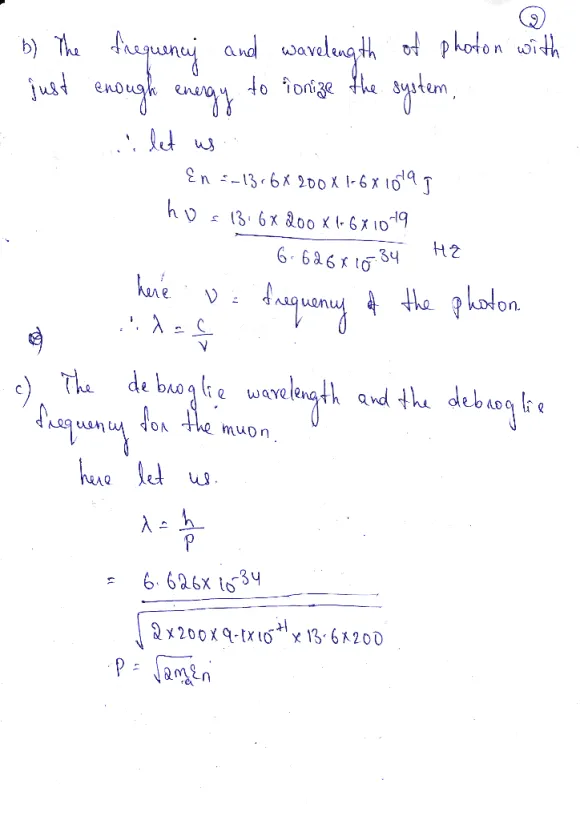 2
b) The frequency and wavelength of photon with
just enough energy to ionize the system.
∴ let us
εn = -13.6 x 200 x 1.6 x 10^-19 J
hυ = 13.6 x 200 x 1.6 x 10^-19
6.626 x 10^-34 Hz
here υ = frequency of the photon
∴ λ = c/v
c) The debroglie wavelength and the debroglie
frequency for the muon.
here let us.
λ = h/p
= 6.626 x 10^-34
√2x200x9.1x10^-21 x 13.6x200
P = √2m εn